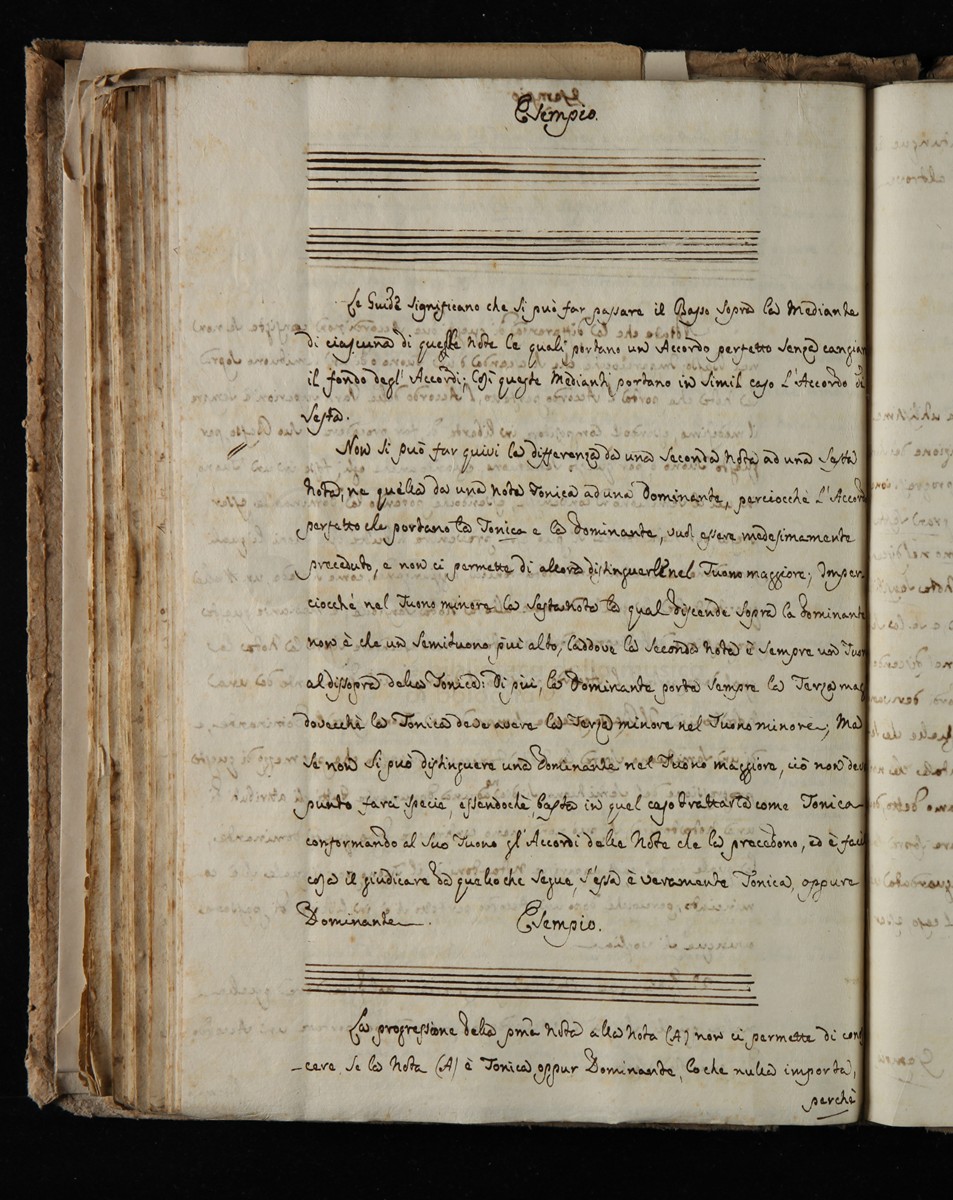 Esempio.
Le Guide significano che si può far passare il Basso sopra la Mediante
di ciascuna di queste Note le quali portano un Accordo perfetto senza cangiar
il fondo degl' Accordi; Così queste Medianti portano in simil caso L'Accordo di
Sesta.
Non si può far quivi la differenza da una Seconda Nota ad una Sesta
Nota; ne quella da una Nota Tonica ad una Dominante, perciocchè L'Accord
perfetto che portano la Tonica e la Dominante, vuol essere medesimamente
preceduto, e non ci permette di allora distinguerle nel Tuono maggiore; Imper
ciocchè nel Tuono minore la Sesta Nota la qual discende sopra la Dominante
non è che un Semituono più alto, laddove la Seconda Nota è sempre un Tuon
al dissopra della Tonica: Di più, la Dominante porta sempre la Terza mag
dovecchè la Tonica deve avere la Terza minore nel Tuono minore; Ma
se non si può distinguere una Dominante nel Tuono maggiore, ciò non de
punto farci specie, essendochè, basta in quel caso trattarla come Tonica
conformando al suo Tuono gl' Accordi delle Note che la precedono, ed è facil
cosa il giudicare da quello che segue, s'essa è veramente Tonica, oppure
Dominante. Esempio.
La progressione della pma Nota alla Nota (A) non ci permette di con
cere se la Nota (A) è Tonica, oppur Dominante, lo che nulla importa,
perchè